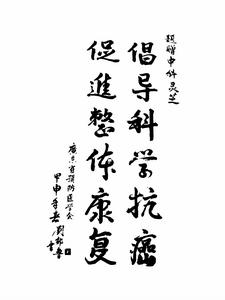 题赠中科灵芝
倡导科学抗癌
促進整体康复
广东省预防医学会
甲申年春